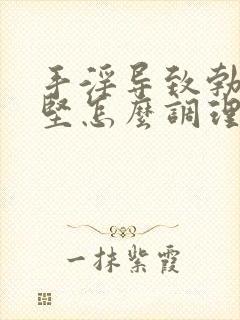 手淫导致勃
坚怎麼調理
一抹紫霞